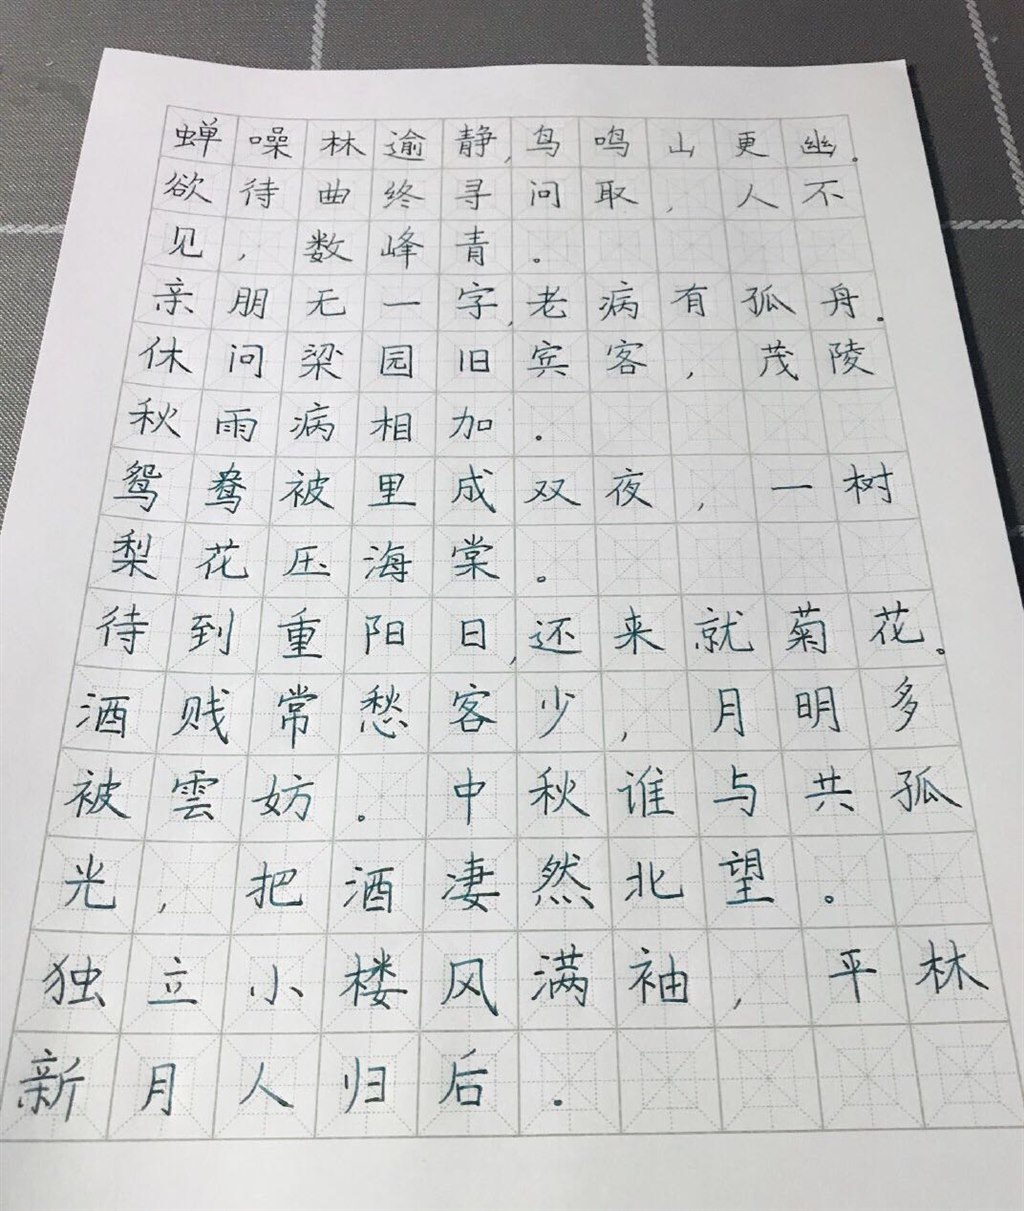 蝉噪林逾静,鸟鸣山更幽。
欲待曲终寻问取,人不
见,数峰青。
亲朋无一字,老病有孤舟.
休问梁园旧宾客,茂陵
秋雨病相加.
鸳鸯被里成双夜,一树
梨花压海棠。
待到重阳日,还来就菊花。
酒贱常愁客少,月明多
被雲妨。中秋谁与共孤
光,把酒凄然北望。
独立小楼风满袖,平林
新月人归后.